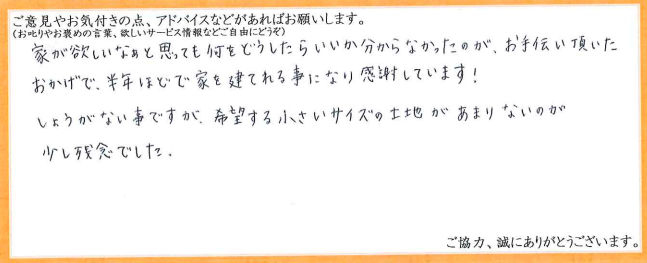 ご意見やお気付きの点、アドバイスなどがあればお願いします。
(お叱りやお褒めの言葉、欲しいサービス情報などご自由にどうぞ)
家が欲しいなぁと思っても何をどうしたらいいか分からなかったのが、お手伝い頂いた
おかげで、半年ほどで家を建てれる事になり感謝しています!
しょうがない事ですが、希望する小さいサイズの土地があまりないのが
少し残念でした。
ご協力、誠にありがとうございます。